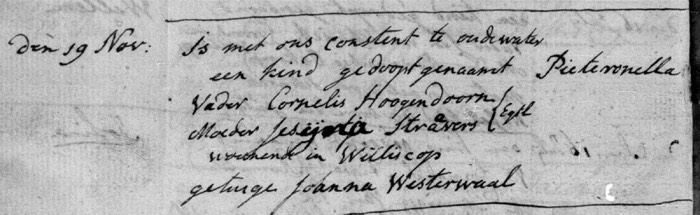 den 19 Nov: Is met ons constent te oudewater
een kind gedoopt genaamt Pieteronella
Vader Cornelis Hoogendoorn
Moeder Stravers } Egtl
woonende in Williscop
getuige Joanna Westerwaal